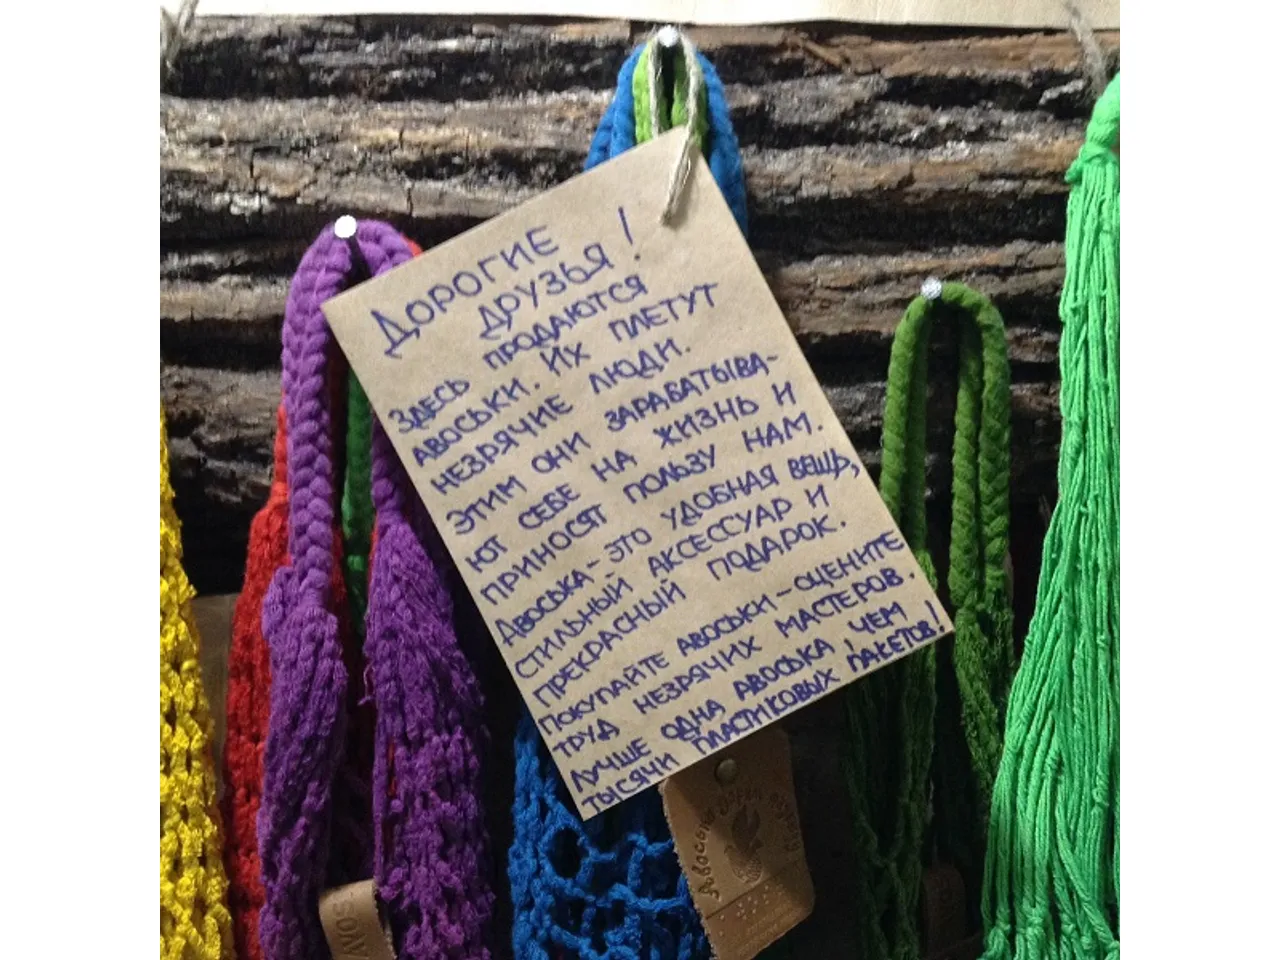 ДОРОГИЕ
ДРУЗЬЯ!
ЗДЕСЬ ПРОДАЮТСЯ
АВОСЬКИ. ИХ ПЛЕТУТ
НЕЗРЯЧИЕ ЛЮДИ.
ЭТИМ ОНИ ЗАРАБАТЫВА-
ЮТ СЕБЕ НА ЖИЗНЬ И
ПРИНОСЯТ ПОЛЬЗУ НАМ.
АВОСЬКА-ЭТО УДОБНАЯ ВЕЩЬ,
СТИЛЬНЫЙ АКСЕССУАР И
ПРЕКРАСНЫЙ ПОДАРОК.
ПОКУПАЙТЕ АВОСЬКИ-ОЦЕНИТЕ
ТРУД НЕЗРЯЧИХ МАСТЕРОВ.
ЛУЧШЕ ОДНА АВОСЬКА, ЧЕМ
ТЫСЯЧИ ПЛАСТИКОВЫХ ПАКЕТОВ!
Авоська дарит